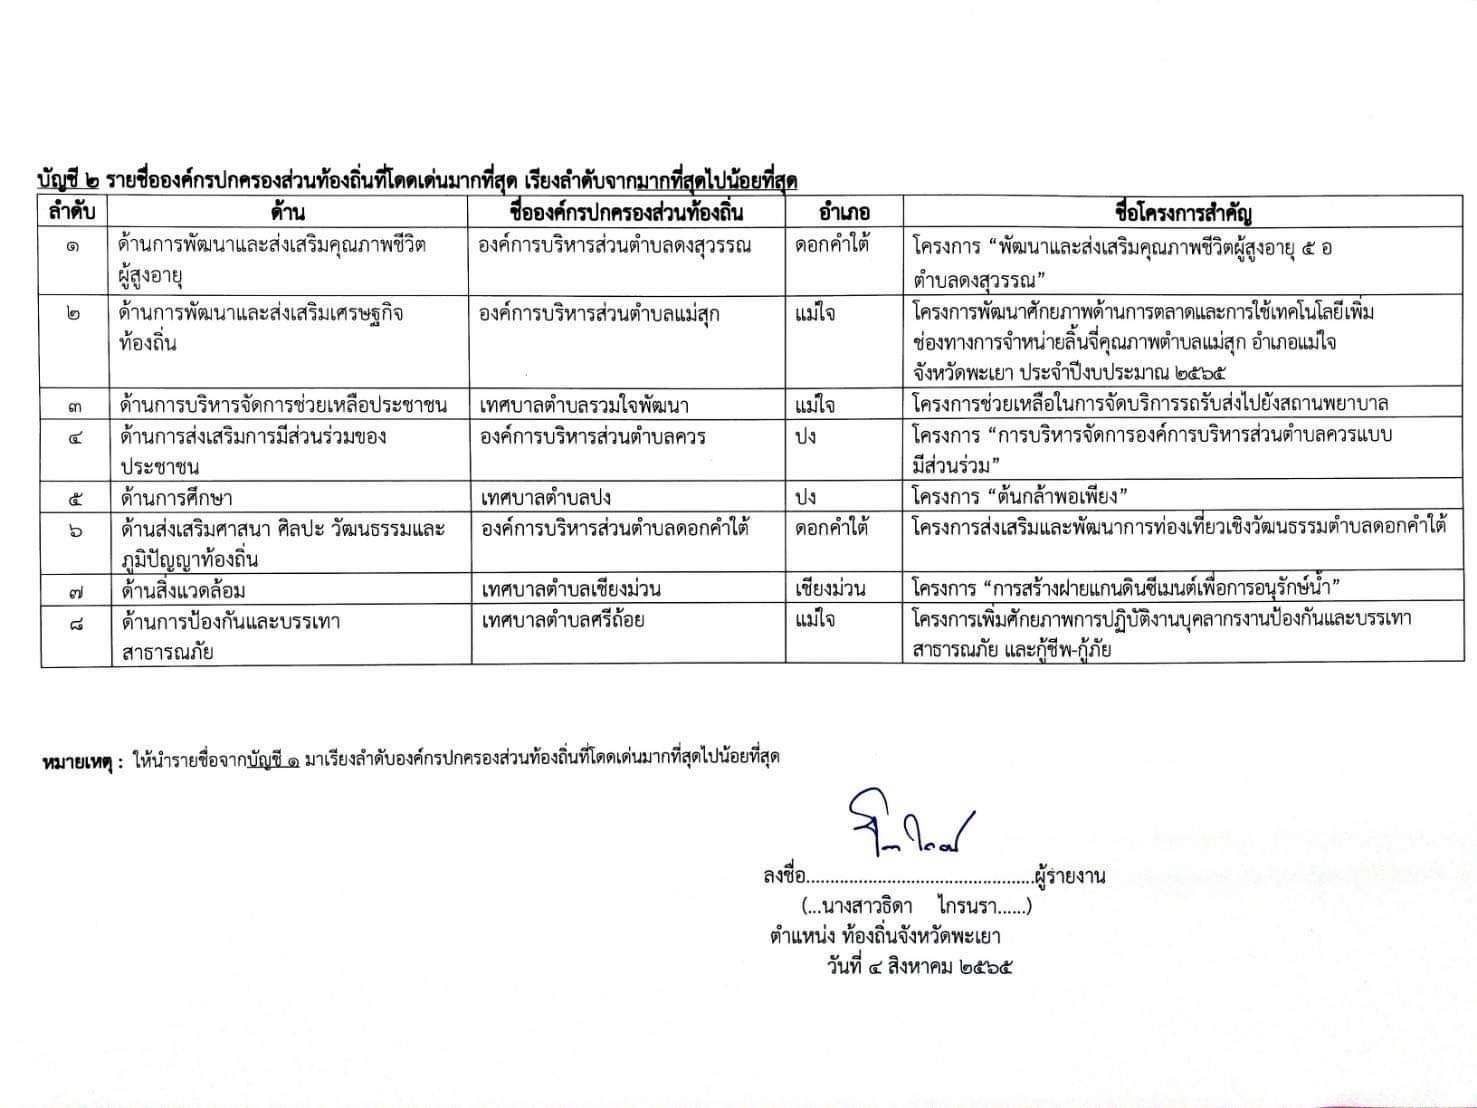 บัญชี ๒ รายชื่อองค์กรปกครองส่วนท้องถิ่นที่โดดเด่นมากที่สุด เรียงลำดับจากมากที่สุดไปน้อยที่สุด
ลำดับ ด้าน ชื่อองค์กรปกครองส่วนท้องถิ่น อำเภอ ชื่อโครงการสำคัญ
๑ ด้านการพัฒนาและส่งเสริมคุณภาพชีวิต องค์การบริหารส่วนตำบลดงสุวรรณ ดอกคำใต้ โครงการ “พัฒนาและส่งเสริมคุณภาพชีวิตผู้สูงอายุ ๕ อ
ผู้สูงอายุ ตำบลดงสุวรรณ”
๒ ด้านการพัฒนาและส่งเสริมเศรษฐกิจ องค์การบริหารส่วนตำบลแม่สุก แม่ใจ โครงการพัฒนาศักยภาพด้านการตลาดและการใช้เทคโนโลยีเพิ่ม
ท้องถิ่น ช่องทางการจำหน่ายลิ้นจี่คุณภาพตำบลแม่สุก อำเภอแม่ใจ
จังหวัดพะเยา ประจำปีงบประมาณ ๒๕๖๕
๓ ด้านการบริหารจัดการช่วยเหลือประชาชน เทศบาลตำบลรวมใจพัฒนา แม่ใจ โครงการช่วยเหลือในการจัดบริการรถรับส่งไปยังสถานพยาบาล
๔ ด้านการส่งเสริมการมีส่วนร่วมของ องค์การบริหารส่วนตำบลควร ปง โครงการ “การบริหารจัดการองค์การบริหารส่วนตำบลควรแบบ
ประชาชน มีส่วนร่วม”
๕ ด้านการศึกษา เทศบาลตำบลปง ปง โครงการ “ต้นกล้าพอเพียง”
๖ ด้านส่งเสริมศาสนา ศิลปะ วัฒนธรรมและ องค์การบริหารส่วนตำบลดอกคำใต้ ดอกคำใต้ โครงการส่งเสริมและพัฒนาการท่องเที่ยวเชิงวัฒนธรรมตำบลดอกคำใต้
ภูมิปัญญาท้องถิ่น
๗ ด้านสิ่งแวดล้อม เทศบาลตำบลเชียงม่วน เชียงม่วน โครงการ “การสร้างฝายแกนดินซีเมนต์เพื่อการอนุรักษ์น้ำ”
๘ ด้านการป้องกันและบรรเทา เทศบาลตำบลศรีถ้อย แม่ใจ โครงการเพิ่มศักยภาพการปฏิบัติงานบุคลากรงานป้องกันและบรรเทา
สาธารณภัย สาธารณภัย และกู้ชีพ-กู้ภัย
หมายเหตุ : ให้นำรายชื่อจากบัญชี ๑ มาเรียงลำดับองค์กรปกครองส่วนท้องถิ่นที่โดดเด่นมากที่สุดไปน้อยที่สุด
ลงชื่อ..............................................ผู้รายงาน
(...นางสาวธิดา ไกรนรา......)
ตำแหน่ง ท้องถิ่นจังหวัดพะเยา
วันที่ ๔ สิงหาคม ๒๕๖๕